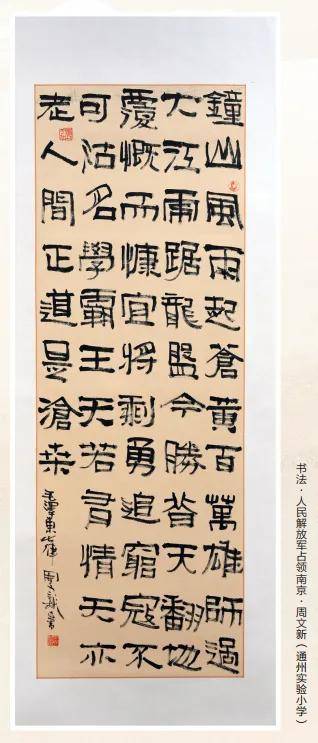 鐘山風雨起蒼黄百萬雄師過
大江虎踞龍盤今勝昔天翻地
覆慨而慷宜將剩勇追窮寇不
可沽名學霸王天若有情天亦
老人間正道是滄桑
毛澤東
书法·人民解放军占领南京·周文新（通州实验小学）